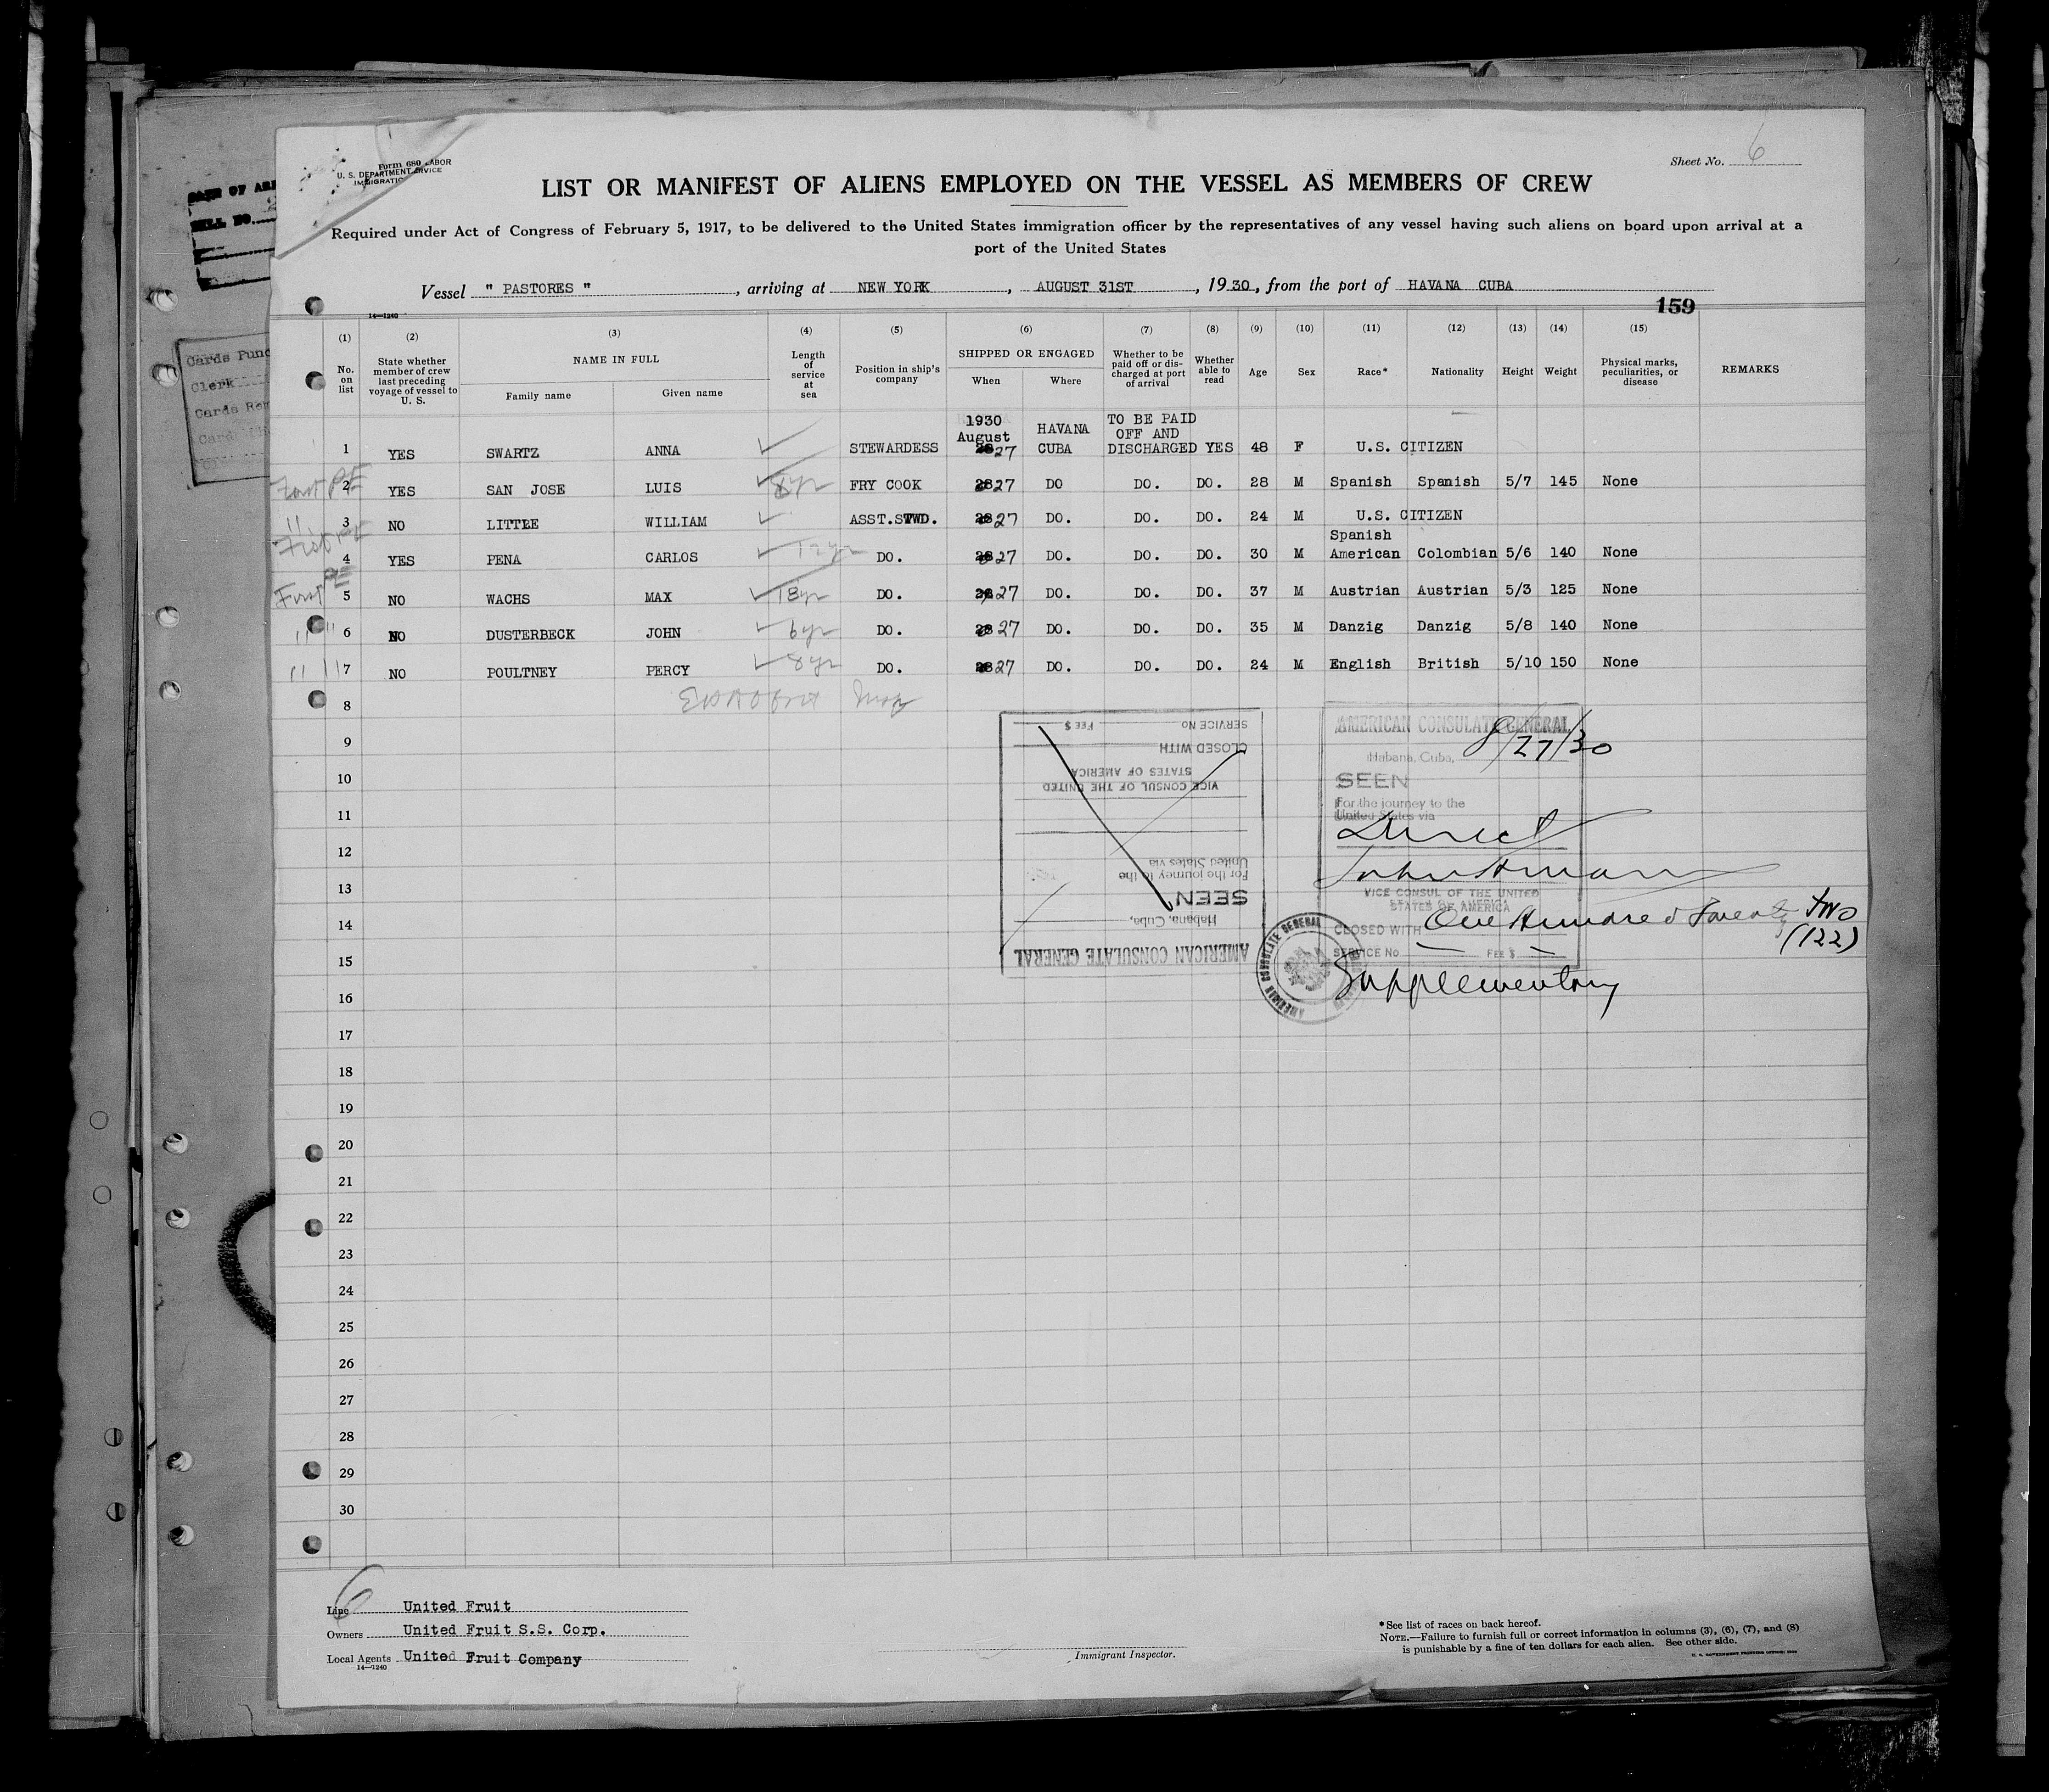 Form 680
U. S. DEPARTMENT LABOR
Sheet No. 6
LIST OR MANIFEST OF ALIENS EMPLOYED ON THE VESSEL AS MEMBERS OF CREW
Required under Act of Congress of February 5, 1917, to be delivered to the United States immigration officer by the representatives of any vessel having such aliens on board upon arrival at a
port of the United States
Vessel " PASTORES ", arriving at NEW YORK, AUGUST 31ST, 1930, from the port of HAVANA CUBA
159
14—1240
(1) (2) (3) (4) (5) (6) (7) (8) (9) (10) (11) (12) (13) (14) (15)
No. on list
State whether member of crew last preceding voyage of vessel to U. S.
NAME IN FULL
Family name
Given name
Length of service at sea
Position in ship's company
SHIPPED OR ENGAGED
When
Where
Whether to be paid off or discharged at port of arrival
Whether able to read
Age
Sex
Race*
Nationality
Height
Weight
Physical marks, peculiarities, or disease
REMARKS
1 YES SWARTZ ANNA STEWARDESS 1930 August 27 HAVANA CUBA TO BE PAID OFF AND DISCHARGED YES 48 F U.S. CITIZEN
2 YES SAN JOSE LUIS 8yr FRY COOK 27 DO DO. DO. 28 M Spanish Spanish 5/7 145 None
3 NO LITTLE WILLIAM ASST.STWD. 27 DO. DO. DO. 24 M U.S. CITIZEN
4 YES PENA CARLOS 12yr DO. 27 DO. DO. DO. 30 M Spanish American Colombian 5/6 140 None
5 NO WACHS MAX 18yr DO. 27 DO. DO. DO. 37 M Austrian Austrian 5/3 125 None
6 NO DUSTERBECK JOHN 6yr DO. 27 DO. DO. DO. 35 M Danzig Danzig 5/8 140 None
7 NO POULTNEY PERCY 8yr DO. 27 DO. DO. DO. 24 M English British 5/10 150 None
8
9
10
11
12
13
14
15
16
17
18
19
20
21
22
23
24
25
26
27
28
29
30
AMERICAN CONSULATE GENERAL
Habana, Cuba,
SEEN
For the journey to the
United States via
VICE CONSUL OF THE UNITED
STATES OF AMERICA
CLOSED WITH
SERVICE NO FEE $
AMERICAN CONSULATE GENERAL
Habana, Cuba, 8/27/30
SEEN
For the journey to the
United States via
Direct
VICE CONSUL OF THE UNITED
STATES OF AMERICA
CLOSED WITH One Hundred & Twenty two
(122)
SERVICE No FEE $
Supplementary
AMERICAN CONSULATE GENERAL
6
Line United Fruit
Owners United Fruit S.S. Corp.
Local Agents United Fruit Company
14—1240
Immigrant Inspector.
*See list of races on back hereof.
NOTE.—Failure to furnish full or correct information in columns (3), (6), (7), and (8)
is punishable by a fine of ten dollars for each alien. See other side.
U. S. GOVERNMENT PRINTING OFFICE